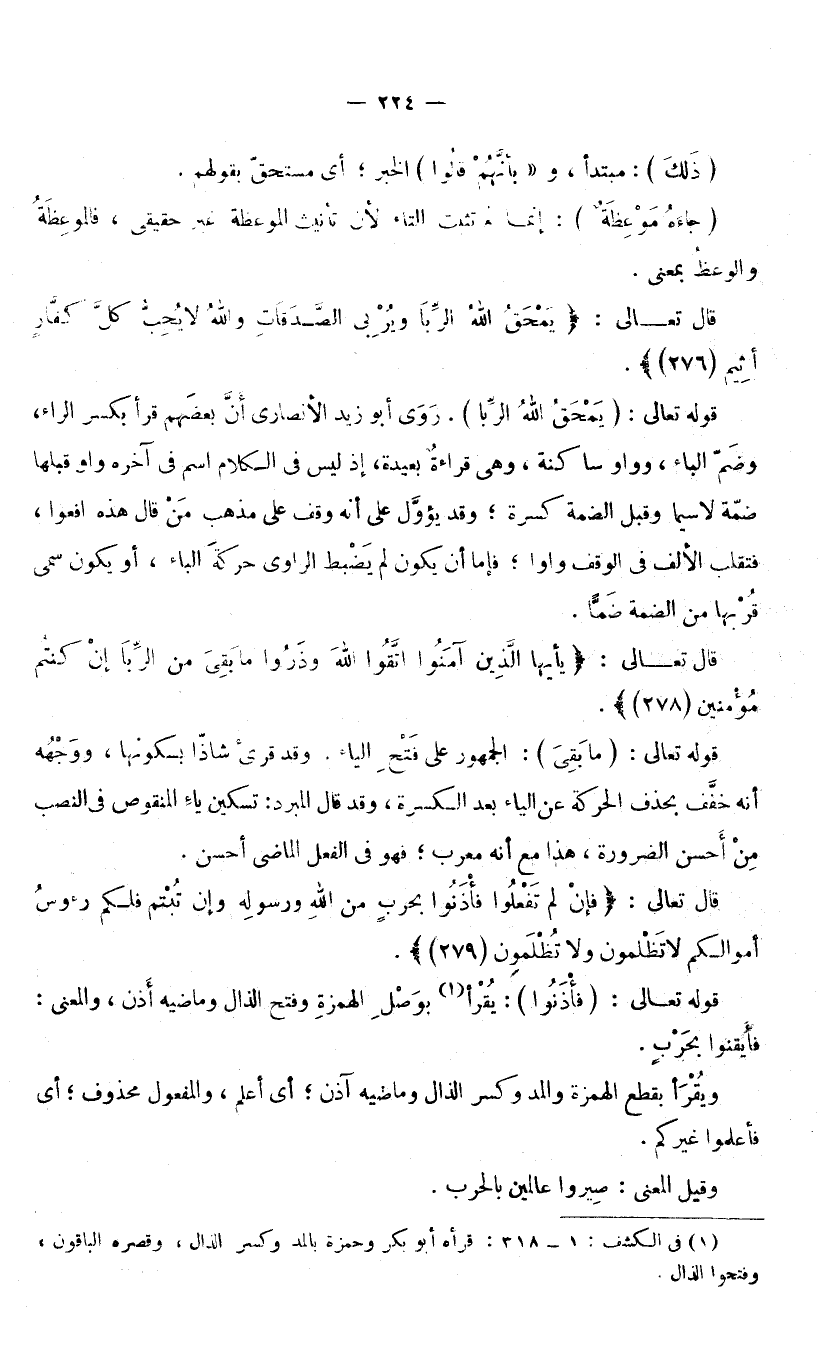 — ٢٢٤ —
( ذَلكَ ) : مبتدأ ، و « بأنَّهُمْ قالُوا ) الخبر ؛ أى مستحقّ بقولهم .
( جاءَهُ مَوْعِظَةٌ ) : إنمـا تثبت التاء لأن تأنيث الموعظة غير حقيقى ، فالموعِظَةُ
والوعظُ بمعنى .
قال تعـــالى : ﴿ يَمْحَقُ اللهُ الرِّبَا ويُرْبِى الصَّـدَقَاتِ واللهُ لايُحِبُّ كلَّ كَفَّارٍ
أثِيمٍ (٢٧٦) ﴾ .
قوله تعالى : ( يَمْحَقُ اللهُ الرِّبا ) . رَوَى أبو زيد الأنصارى أنَّ بعضَهم قرأ بكسر الراء،
وضَمّ الباء ، وواو ساكنة ، وهى قراءةٌ بعيدة، إذ ليس فى الـكلام اسم فى آخره واو قبلها
ضمّة لاسيما وقبل الضمة كسرة ؛ وقد يؤوَّل على أنه وقف على مذهب مَنْ قال هذه افعوا ،
فتقلب الألف فى الوقف واوا ؛ فإما أن يكون لم يَضْبط الراوى حركةَ الباء ، أو يكون سمى
قُرْبها من الضمة ضَمًّا .
قال تعـــالى : ﴿ يأيها الَّذِين آمَنُوا اتَّقُوا اللهَ وذَرُوا مابَقِىَ من الرِّبَا إنْ كنتُم
مُؤْمنين (٢٧٨) ﴾ .
قوله تعالى : ( مابَقِىَ ) : الجمهور على فَتْحِ الياء . وقد قرئ شاذّا بسكونها ، ووَجْهُه
أنه خفَّف بحذف الحركة عن الياء بعد الـكسرة ، وقد قال المبرد: تسكين ياءِ المنقوص فى النصب
مِنْ أَحسن الضرورة ، هذا مع أنه معرب ؛ فهو فى الفعل الماضى أحسن .
قال تعالى : ﴿ فإنْ لم تَفْعَلُوا فأْذَنُوا بحربٍ من اللهِ ورسولِه وإن تُبْتم فلـكم رءوسُ
أموالـكم لاتَظْلمون ولا تُظْلَمون (٢٧٩) ﴾ .
قوله تعـالى : ( فأْذَنُوا ) : يُقْرأ(١) بوَصْلِ الهمزةِ وفتح الذال وماضيه أَذن ، والمعنى :
فأَيقنوا بحَرْبٍ .
ويُقْرَأ بقطع الهمزة والمد وكسر الذال وماضيه آذن ؛ أى أعلم ، والمفعول محذوف ؛ أى
فأعلموا غيركم .
وقيل المعنى : صِيروا عالمين بالحرب .
(١) فى الـكشف : ١ ـ ٣١٨ : قرأه أبو بكر وحمزة بالمد وكسر الذال ، وقصره الباقون ،
وفتحوا الذال .